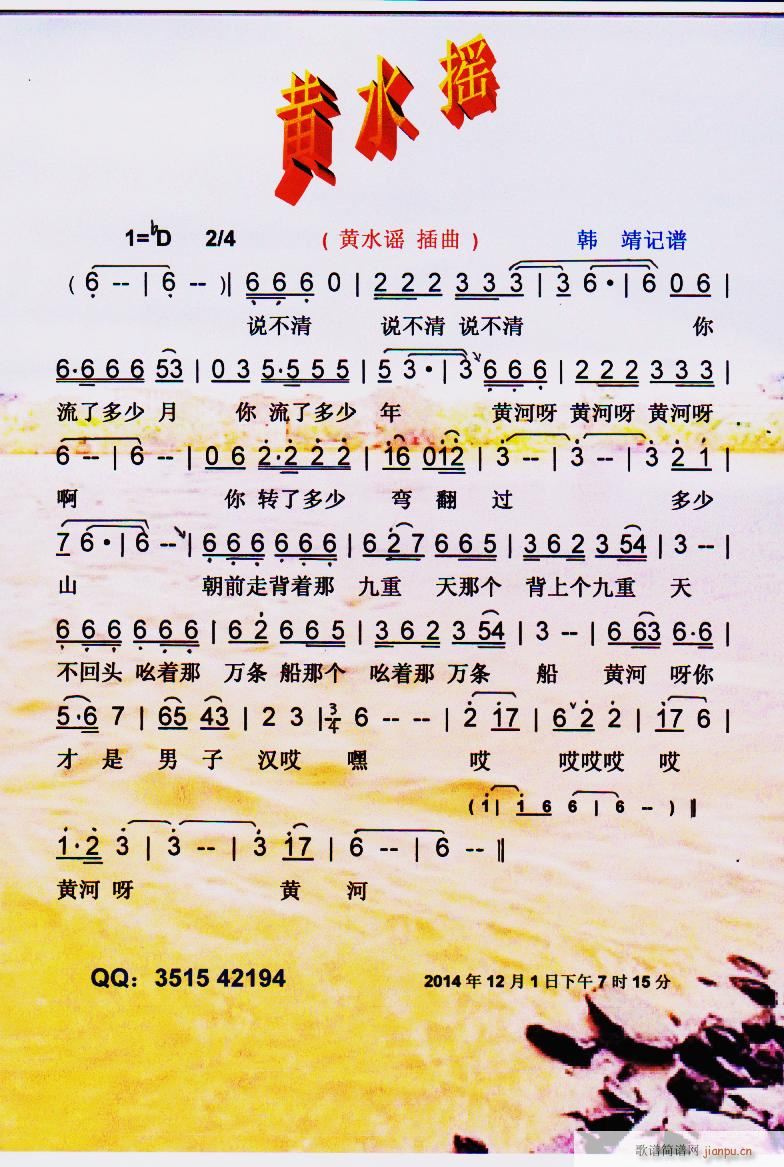 黄水摇
1=♭D 2/4 ( 黄水谣 插曲 ) 韩 靖记谱
( 6 -- | 6 -- )| 6 6 6 0 | 2 2 2 3 3 3 | 3 6 · | 6 0 6 |
说不清 说不清 说不清 你
6·6 6 6 53 | 0 3 5·5 5 5 | 5 3 · | 3 6 6 6 | 2 2 2 3 3 3 |
流了多少 月 你 流了多少 年 黄河呀 黄河呀 黄河呀
6 -- | 6 -- | 0 6 2·2 2 2 | 16 012 | 3 -- | 3 -- | 3 2 1 |
啊 你 转了多少 弯 翻 过 多少
7 6 · | 6 -- | 6 6 6 6 6 6 | 6 2 7 6 6 5 | 3 6 2 3 54 | 3 -- |
山 朝前走背着那 九重 天那个 背上个九重 天
6 6 6 6 6 6 | 6 2 6 6 5 | 3 6 2 3 54 | 3 -- | 6 63 6·6 |
不回头 吆着那 万条 船那个 吆着那 万条 船 黄河 呀你
5·6 7 | 65 43 | 2 3 | 3/4 6 -- -- | 2 17 | 6 ∨ 2 2 | 17 6 |
才 是 男 子 汉哎 嘿 哎 哎哎哎 哎
( 1 | 1 6 6 | 6 -- ) ‖
1·2 3 | 3 -- | 3 17 | 6 -- | 6 -- ‖
黄河 呀 黄 河
QQ：3515 42194 2014 年 12 月 1 日下午 7 时 15 分
歌谱简谱网 jianpu.cn